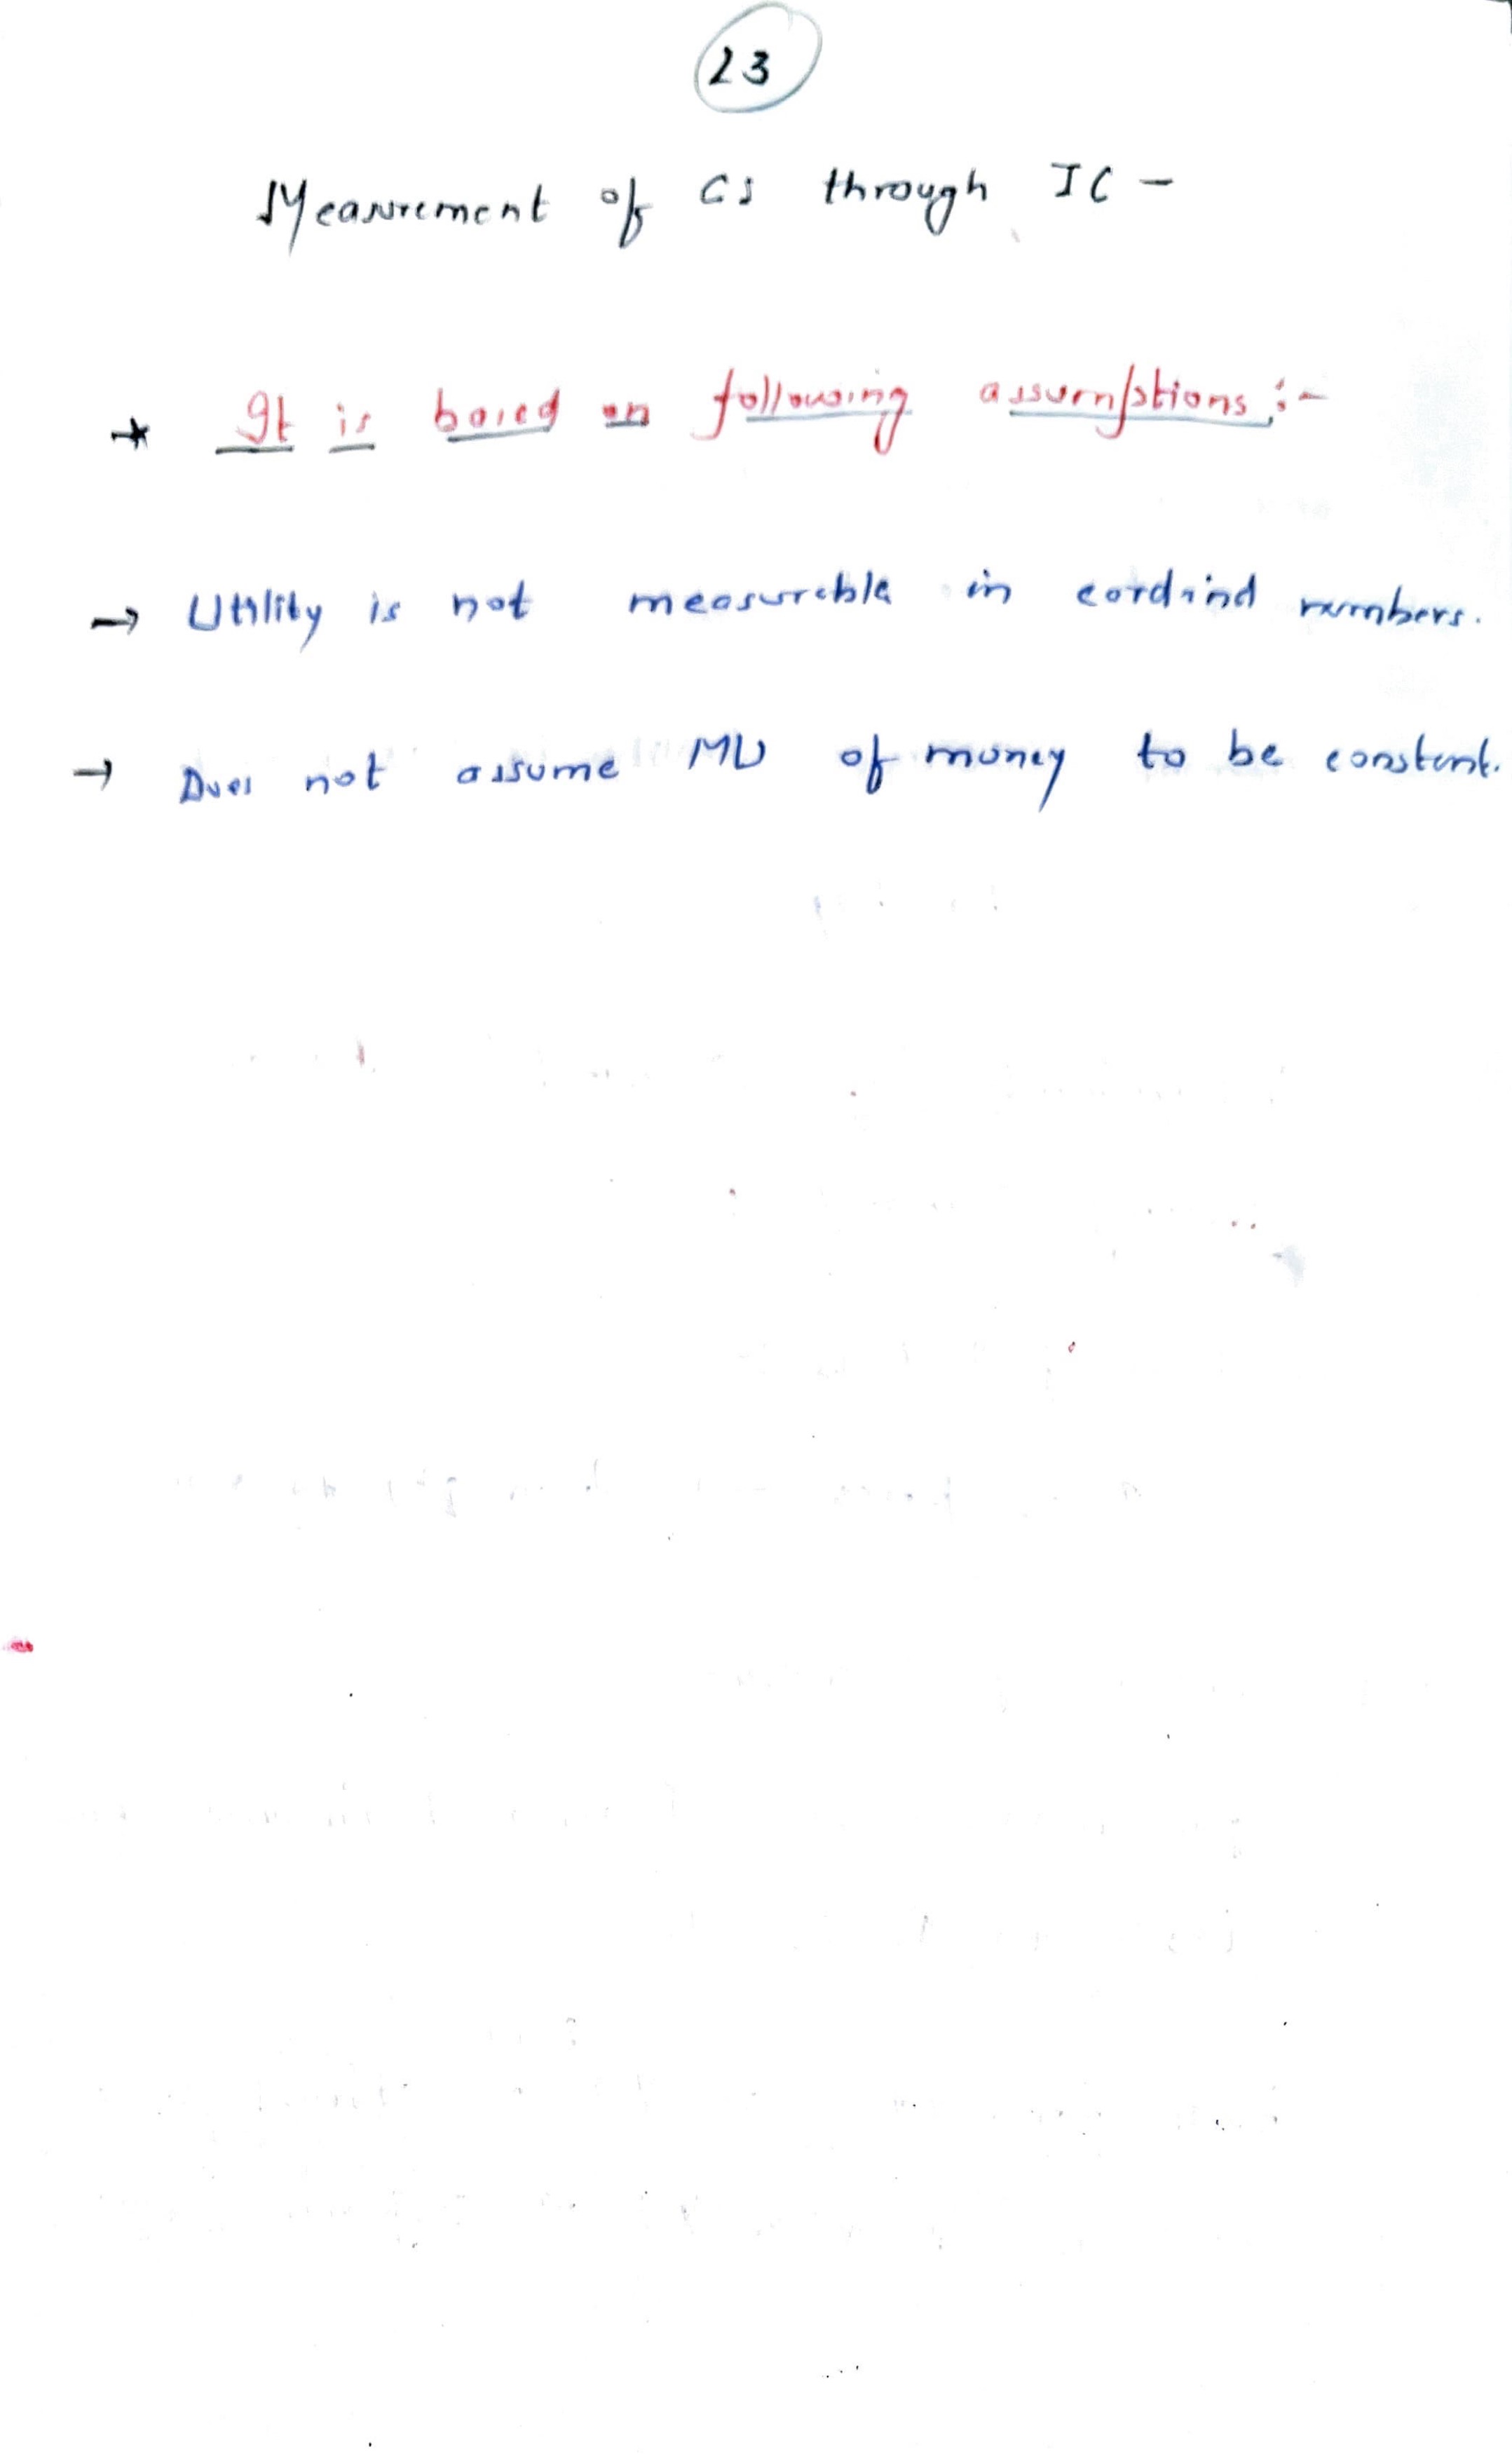 23
Measurement of CS through IC -
* It is based on following assumptions :-
→ Utility is not measurable in cardinal numbers.
→ Does not assume MU of money to be constant.